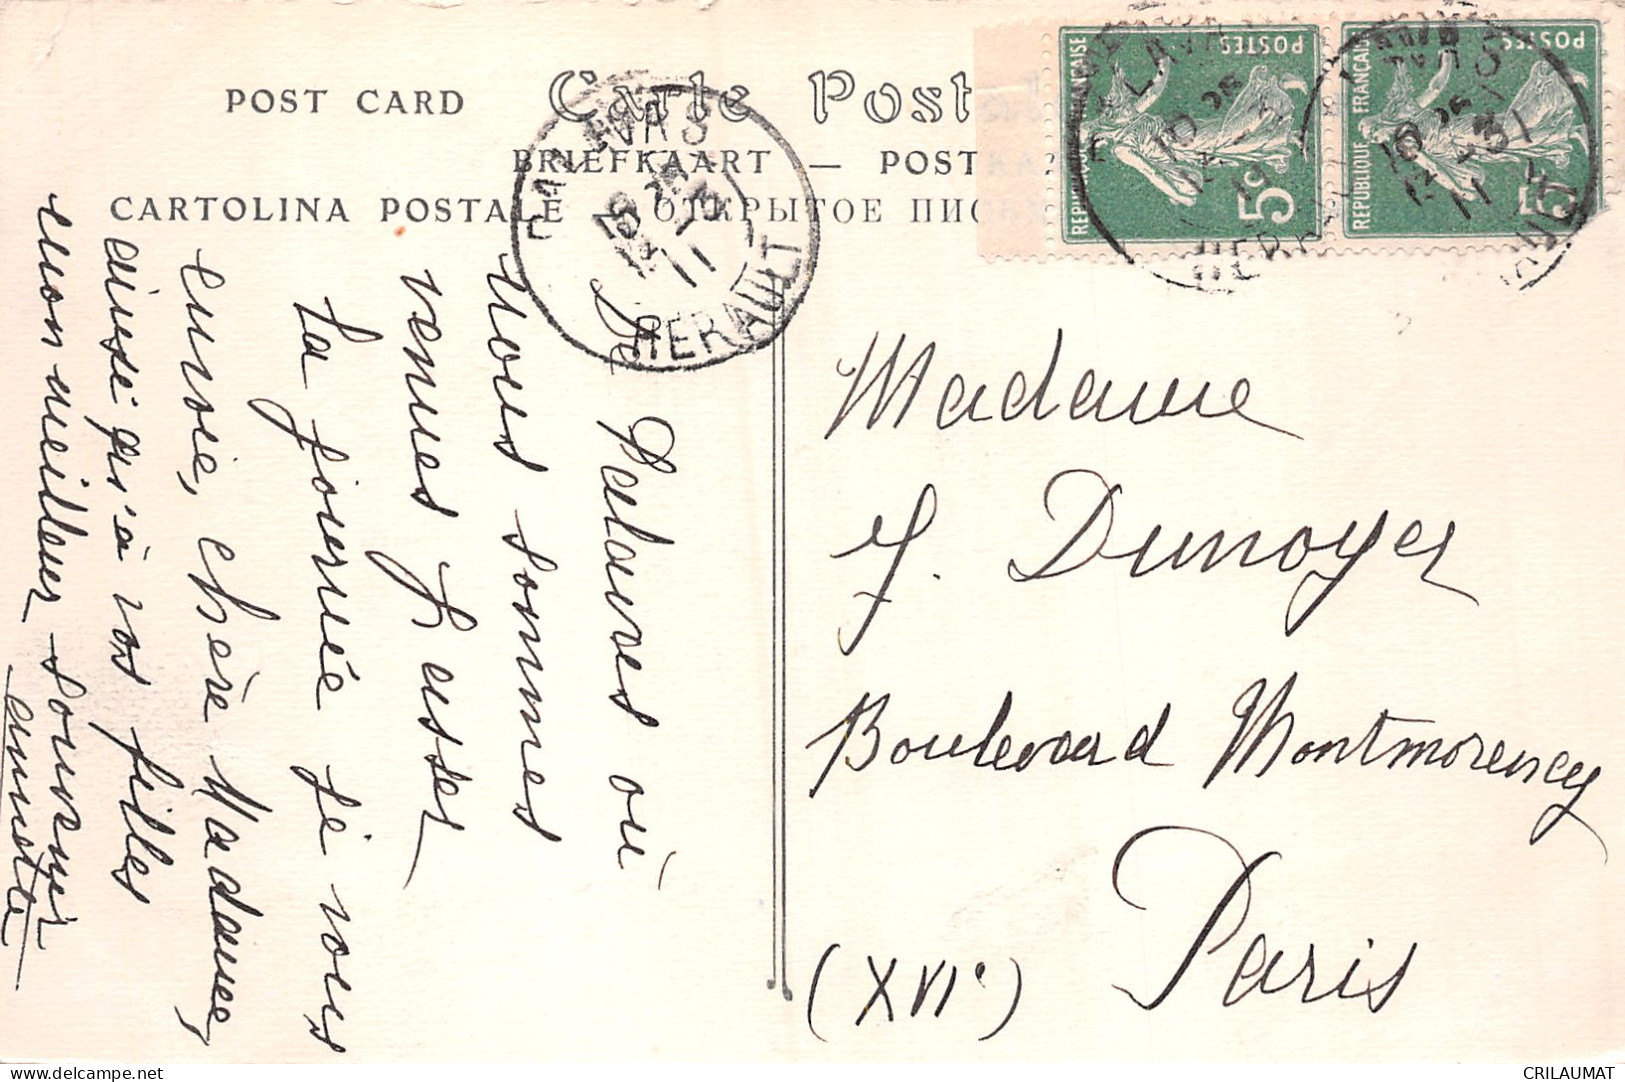 POST CARD
Carte Postale
BRIEFKAART — POST
CARTOLINA POSTALE ОТКРЫТОЕ ПИС
REPUBLIQUE FRANÇAISE
POSTES
5c
REPUBLIQUE FRANÇAISE
POSTES
5c
PALAVAS
11
HERAULT
De Palavas où
nous sommes
venues passer
la journée je vous
envoie, chère Madame,
ainsi qu'à vos filles
mon meilleur souvenir
Madame
J. Dunoyer
Boulevard Montmorency
Paris
(XVIe)
CRILAUMAT